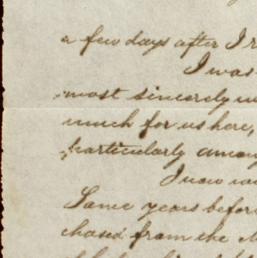 a few days after I r
I was
most sincerely
much for us here,
particularly among
I now
Some years befor
chased from the